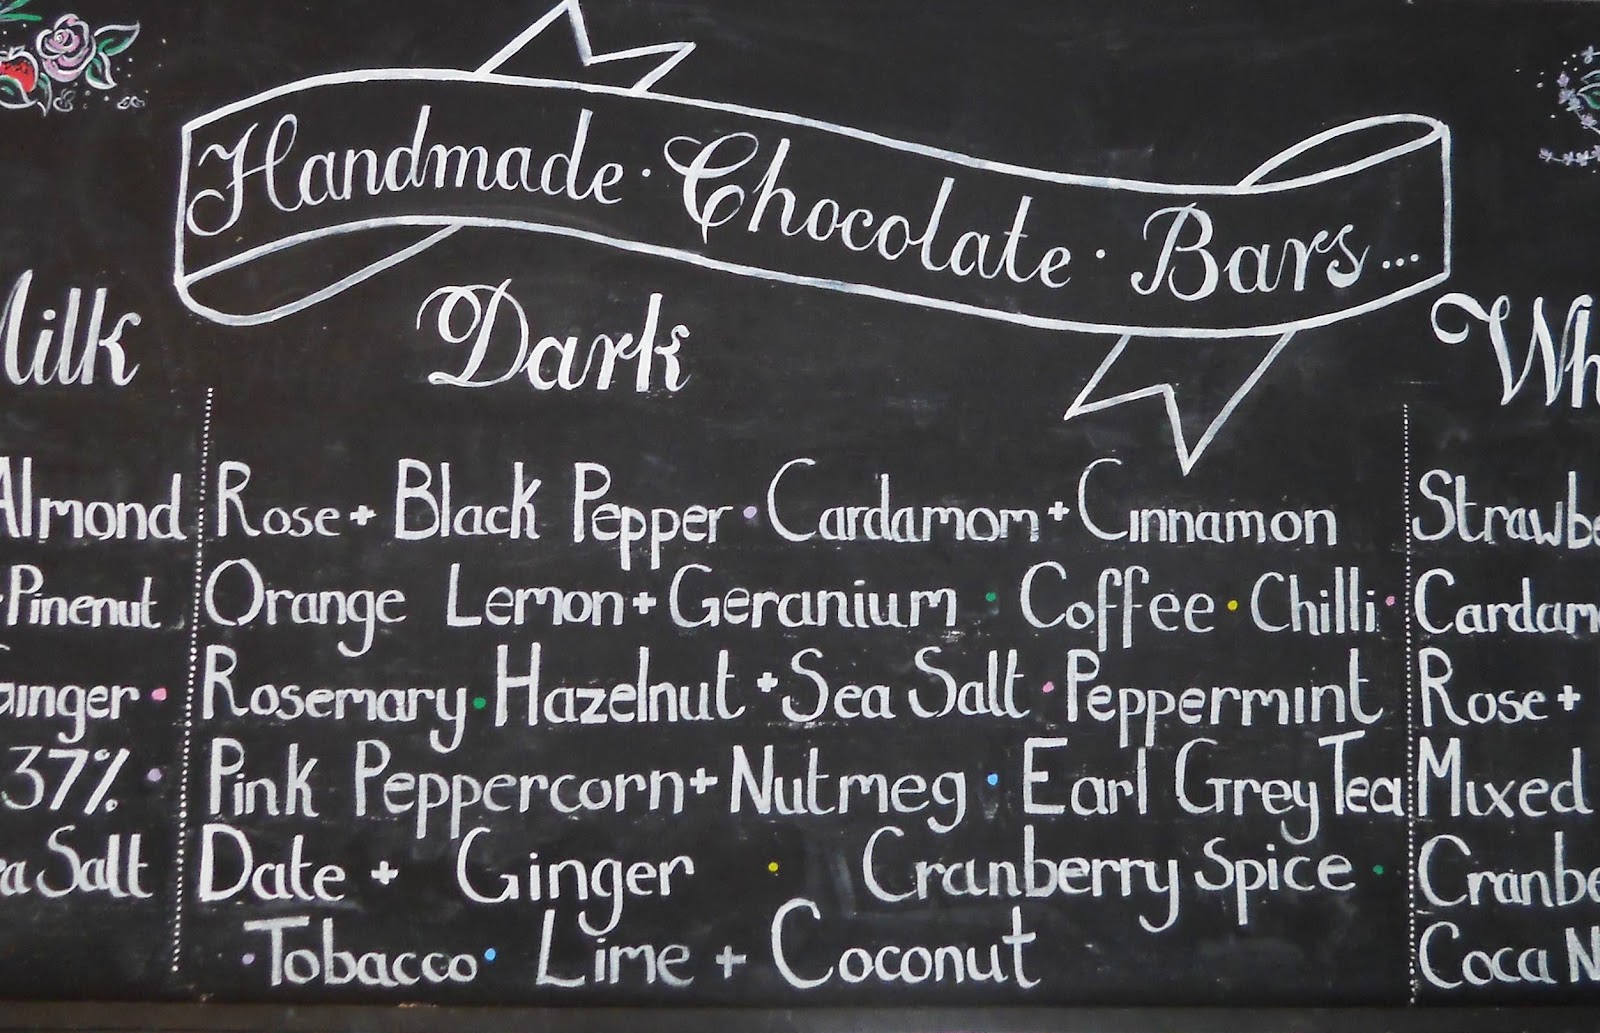 Handmade · Chocolate · Bars...
Milk
Almond
Pinenut
Ginger ·
37% ·
Sea Salt
Dark
Rose + Black Pepper · Cardamom + Cinnamon
Orange Lemon + Geranium · Coffee · Chilli ·
Rosemary · Hazelnut + Sea Salt · Peppermint
Pink Peppercorn + Nutmeg · Earl Grey Tea
Date + Ginger · Cranberry Spice ·
· Tobacco · Lime + Coconut
Wh
Strawbe
Cardam
Rose +
Mixed
Cranbe
Coca N